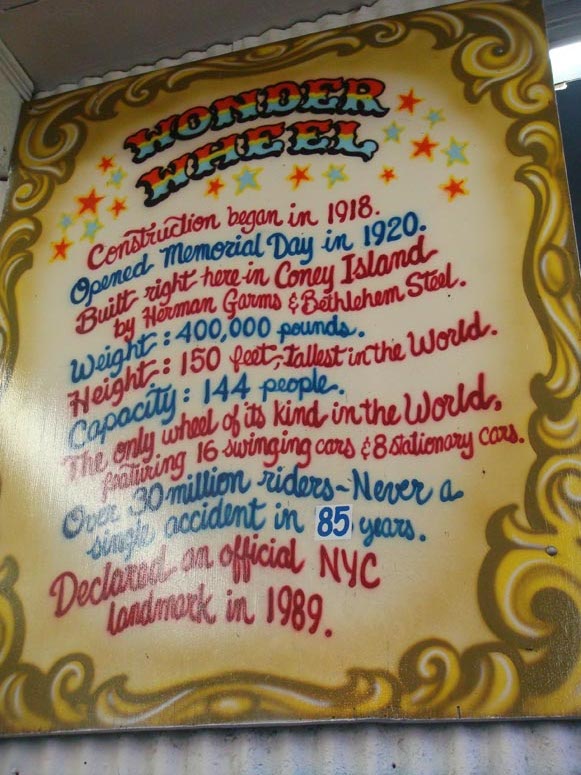 WONDER
WHEEL
Construction began in 1918.
Opened Memorial Day in 1920.
Built right here in Coney Island
by Herman Garms & Bethlehem Steel.
Weight: 400,000 pounds.
Height: 150 feet, tallest in the World.
Capacity: 144 people.
The only wheel of its kind in the World,
featuring 16 swinging cars & 8 stationary cars.
Over 30 million riders - Never a
single accident in 85 years.
Declared an official NYC
landmark in 1989.